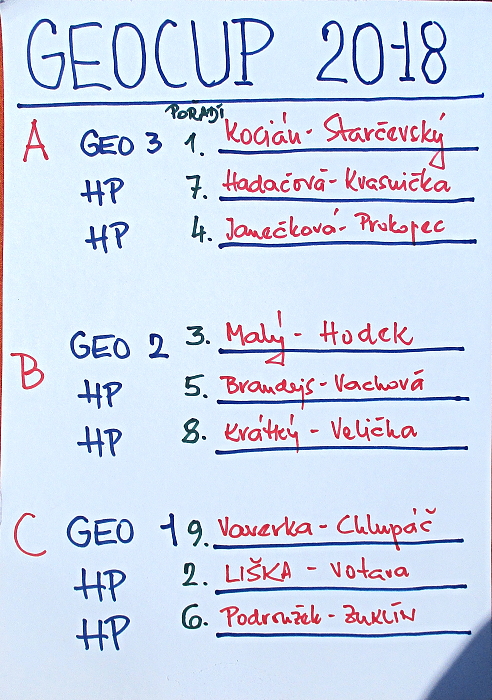 GEOCUP 2018
POŘADÍ
A GEO 3 1. Kocián - Starčevský
HP 7. Hadačová - Kvasnička
HP 4. Janečková - Prokopec
B GEO 2 3. Malý - Hodek
HP 5. Brandejs - Vachová
HP 8. Krátký - Velička
C GEO 1 9. Vaverka - Chlupáč
HP 2. LIŠKA - Votava
HP 6. Podroužek - ŽUKLÍN